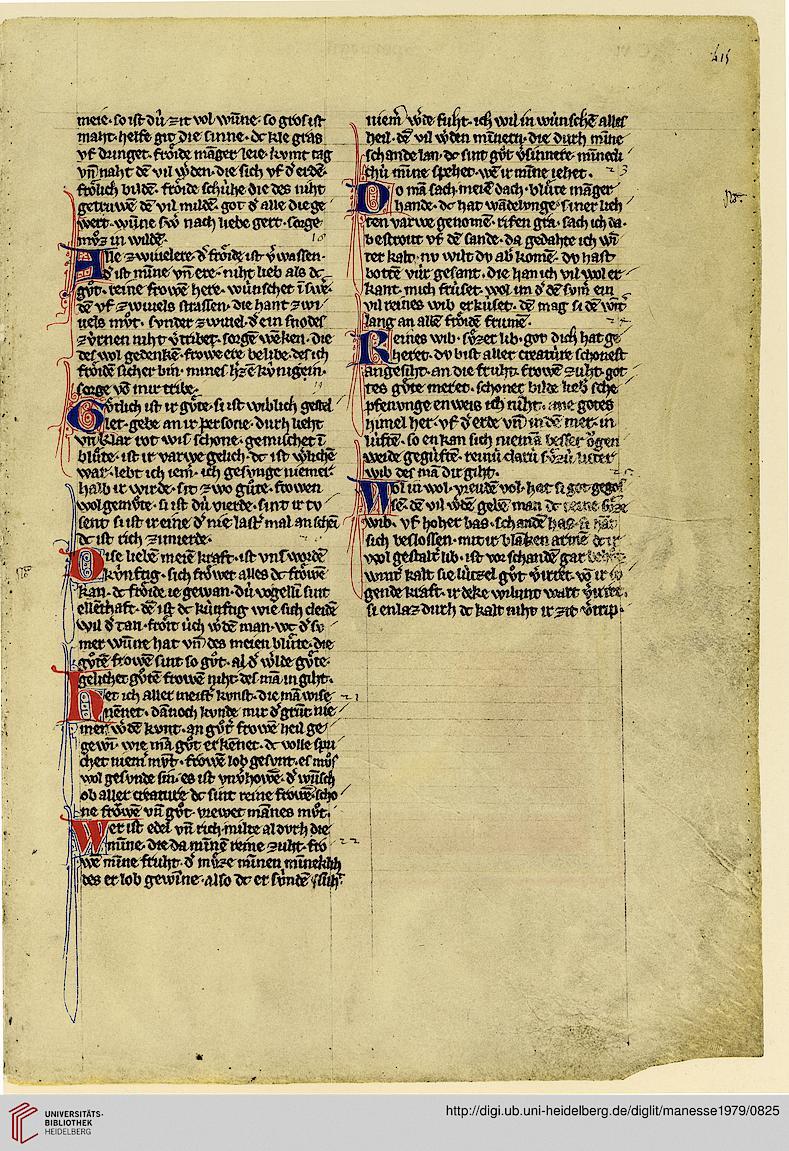 415
meie · so ist dú zit vol wūne · so gros ist
maht · helfe git die sinne · dc kle gras
vf dringet · frôide māger leie · kvmt tag
vn̄ naht dē vil w̕dē · die sich vf d̕ erdē ·
frôlich bildē · frôide schúhe die des niht
getruwē dē vil mildē · got d̕ alle die ge
wert · wūne nach liebe gert · sorge
mvͦz in wildē ·
Ane zwiuelere d̕ frôide ist v̕wassen ·
d̕ ist mīne vn̄ ere · niht lieb als dc
gvͦt · reine frowē here · wúnschet ī
dē vf zwiuels strassen · die hant zwi
uels mvͦt · svnder zwiuel d̕ ein snodes
zv́rnen niht v̕tribet · sorgē wēken · die
des wol gedenkē · frowe ere belibe · des ich
frôide sicher bin · mines h̕zē kv́nigein ·
sorge vō mir tribe ·
Gôtlich ist ir gvͤte · si ist wiblich gestel
let · gebe an ir persone · durh lieht
vn̄ klar rot wis schone · gemischet ī
blvͤte · ist ir varwe gelich · dc ist w̕lichē
war · lebt ich iem̄ · ich gesvnge niemer
halb ir wirde · sit zwo gvͤte · frowen
wolgemvͤte · si ist dú vierde · sint ir tv
sent si ist ir eine d̕ nie last̕ mal an schēt
dc ist rich zimierde ·
Dise liebē meiē kraft · ist vns wordē
kv́nftig · sich frôwet alles dc frôwē
kan · dc frôide ie gewan · dú vogellī sint
ellēthaft · dē ist dc kúnftig wie sich cleidē
wil d̕ tan · frôit úch w̕dē man · wc d̕ sv
mer wūne hat vn̄ des meien blvͤte · die
gvͤtē frowē sint so gvͦt · al d̕ w̕lde gvͤte ·
gelichet gvͤtē frowē niht · des mā in giht ·
Het ich aller meist̕ kvnst · die mā wise
nēnet · dānoch kvnde mir d̕ grūt nie
mer w̕dē kvnt · an gvͤt̕ frowē heil ge
gewī · wie mā gvͦt erkēnet · dc wolle spre
chet niem̄ mvͦt · frowē lob gesvnt · es mvͦs
wol gesvnde sin · es ist vnv̕howē · d̕ wūsch
ob aller creature dc sint reine frowē · scho
ne frôwē vn̄ gvͦt · viewer mānes mvͦt ·
Wer ist edel vn̄ rich · milte al dvrh die
mīne · die da mīnē reine zuht · fro
wē mīne fruht · d̕ mvͤze mīnen mīneklich
des er lob gewīne · also dc er sv́ndē
niem̄ w̕de fuht · ich wil in wúnschē alles
heil · dē vil w̕den mīnern · die durh mīne
schande lan · dc sint gvͦt v̕sūnete mīnedi
mīne spehet · wē ir mīne iehet ·
Do mā sach meiē dach · blvͤte māger
hande · dc hat wādelvnge · siner lieh
ten varwe genomē · rifen gra · sach ich da ·
bestrout vf dē sande · da gedahte ich wī
ter kalt · nv wilt dv ab̕ komē · dv hast
botē vúr gesant · die han ich vil wol er
kant · mich frúset · wol im d̕ dē svm̄ ein
vil reines wib erkúset · dē mag si dē wīt̕
lang an allē frôidē frumē ·
Reines wib · sv́zer lib · got dich hat ge
heret · dv bist aller creatúre schonest
angesiht · an die fruht · frowē zuht · got
tes gvͤte meret · schoner bilde lieb sche
pfenvnge enweis ich niht · ane gotes
himel her · vf d̕ erde vn̄ in dē mer · in
lúftē · so en kan sich niemā besser ôgen
weide gegúftē · reinú clarú sv́zú lúter
wib des mā dir giht ·
Wol in wol · vreudē vol · hat si got gegos
sē · dē vil w̕dē gelē man dc reine sv́ze
wib · vf hoher bas · schandē has · si hat
sich beslossen · mit ir blāken armē dc ir
wol gestalt lib · ist vor schandē gar
wint̕ kalt sie lútzel gvͦt v̕irret · vō ir
gende kraft · ir deke wibint wart v̕irret ·
si enlaz durh dc kalt niht ir zit v̕trip ·
18
19
21
22
23
24
25
UNIVERSITÄTS-
BIBLIOTHEK
HEIDELBERG
http://digi.ub.uni-heidelberg.de/diglit/manesse1979/0825